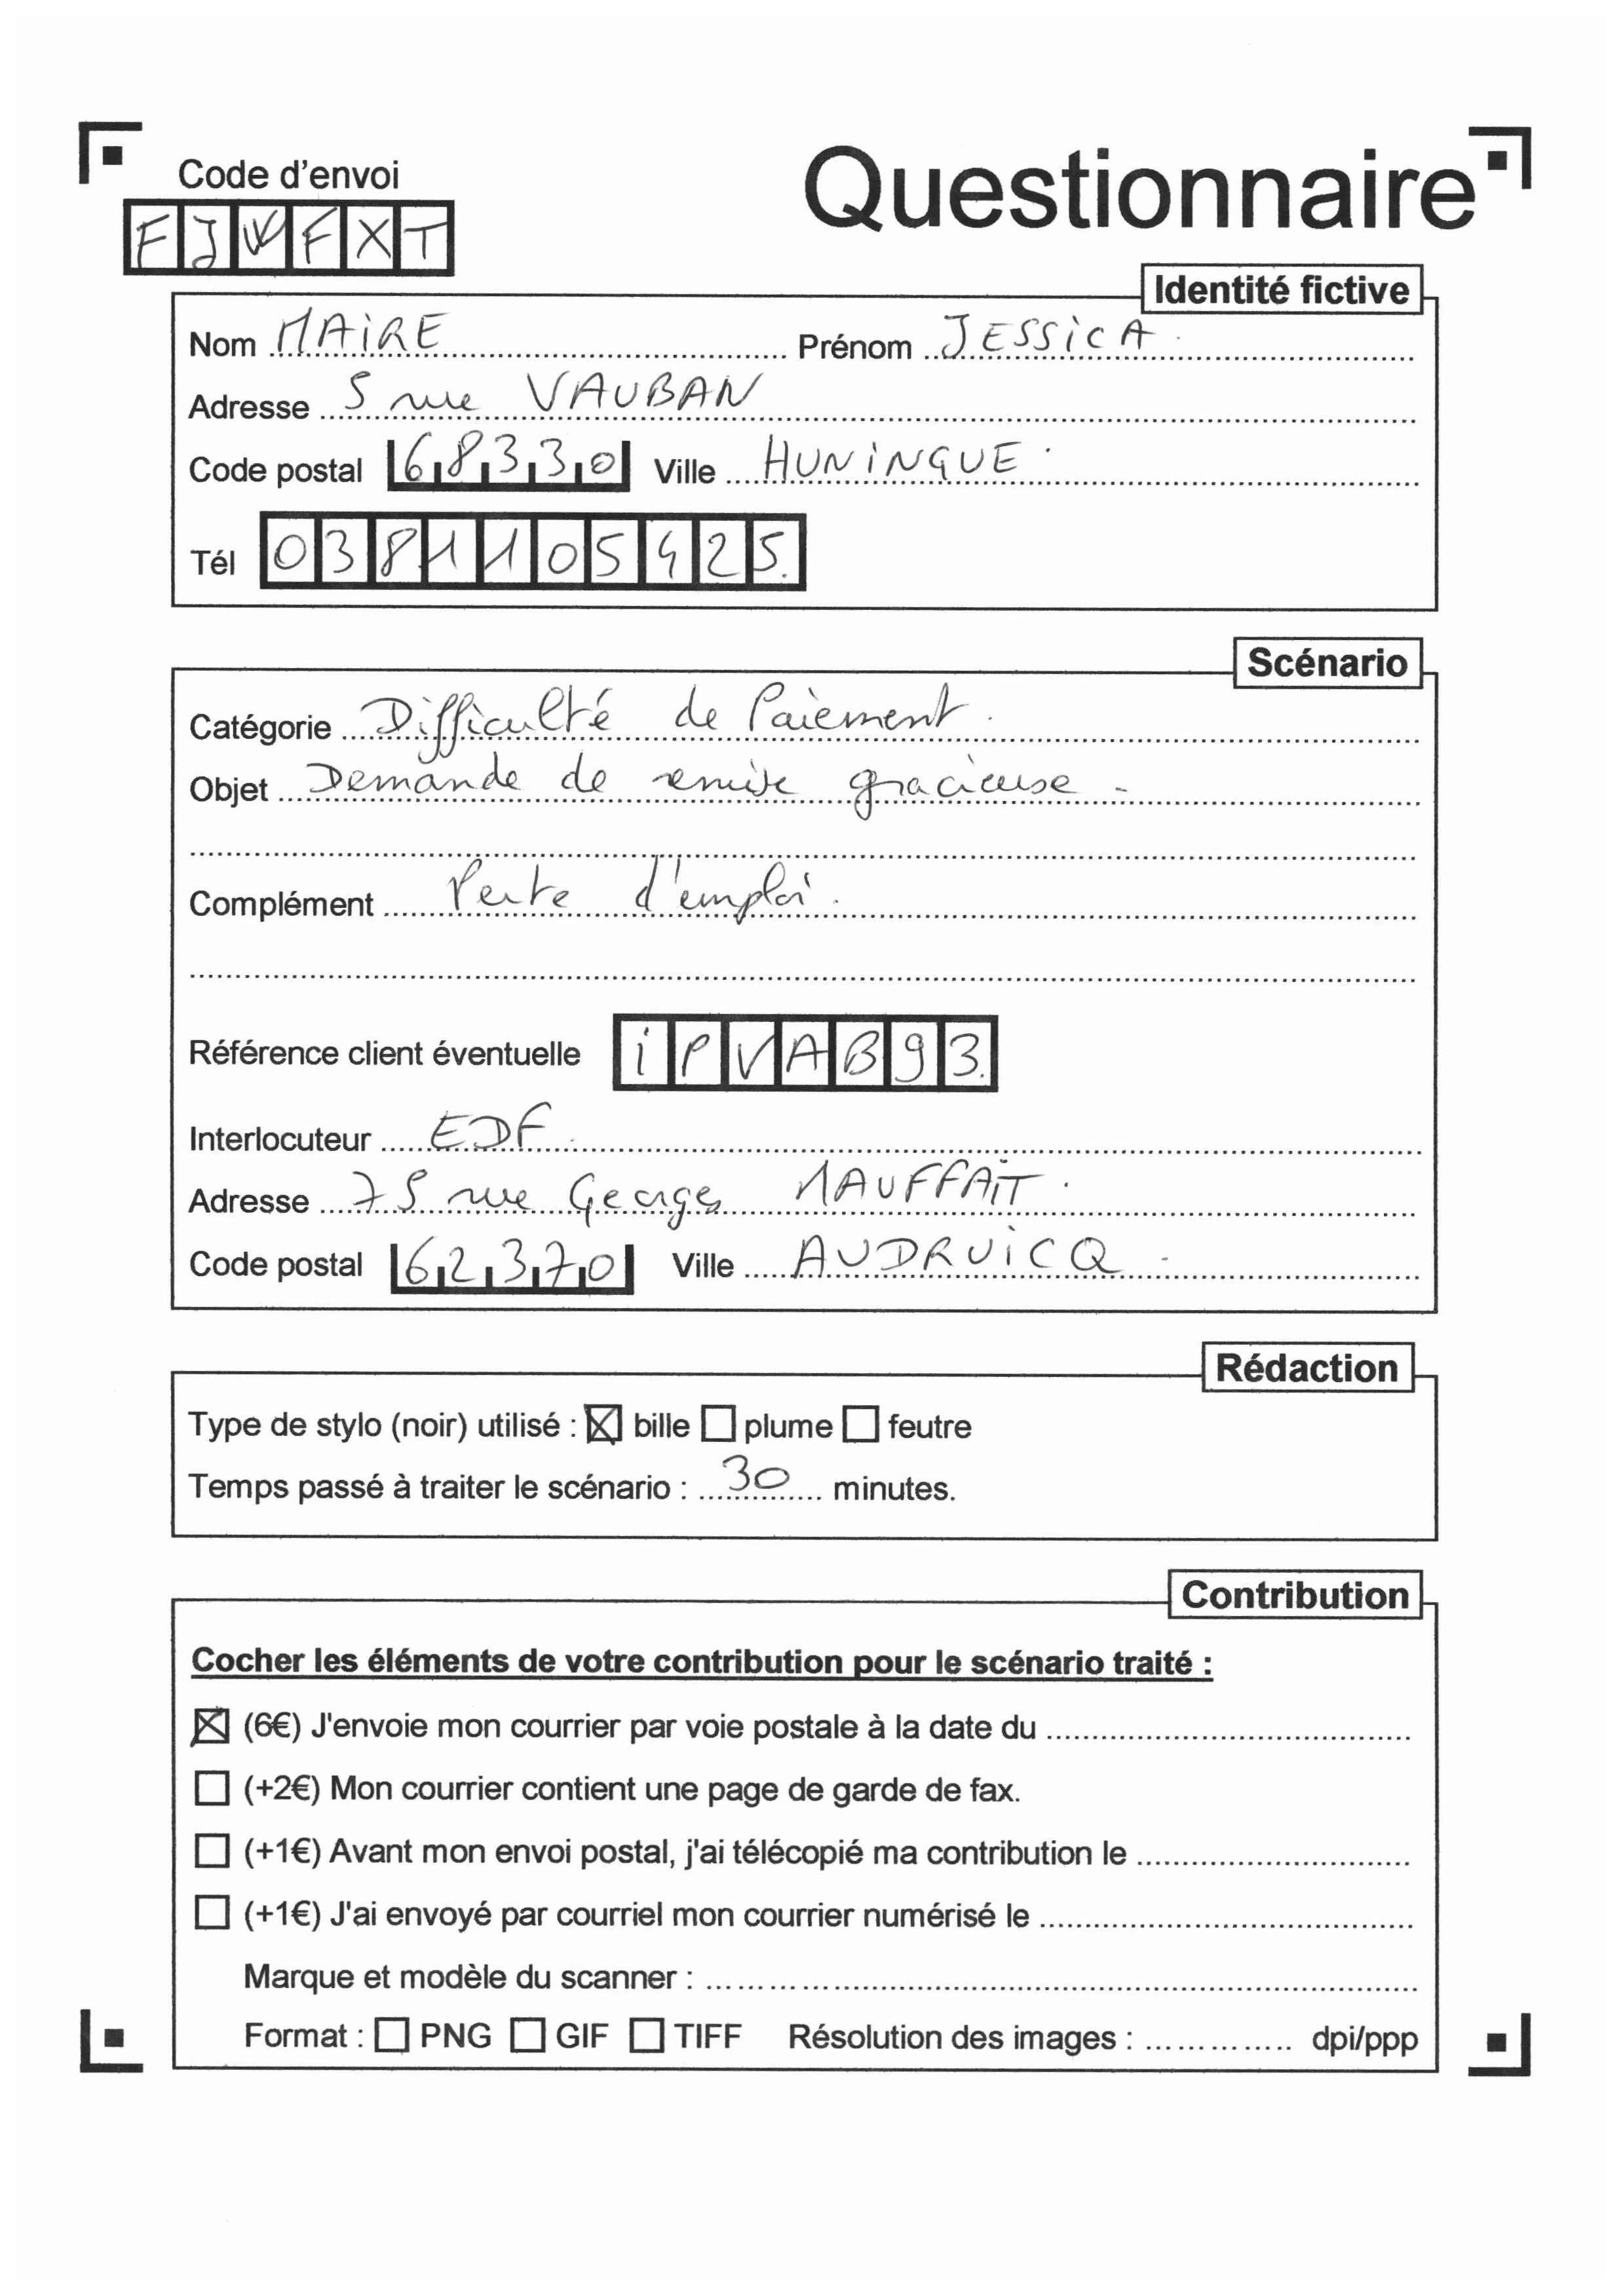 Code d'envoi
Questionnaire
FJWFXT
Identité fictive
Nom MAiRE Prénom JESSiCA.
Adresse 5 rue VAUBAN
Code postal 68330 Ville HUNiNGUE.
Tél 0381105425.
Scénario
Catégorie Difficulté de Paiement.
Objet Demande de remise gracieuse.
Complément Perte d'emploi.
Référence client éventuelle iPVAB93.
Interlocuteur EDF.
Adresse 75 rue Georges MAUFFAiT.
Code postal 62370 Ville AUDRUiCQ.
Rédaction
Type de stylo (noir) utilisé : ☒ bille ☐ plume ☐ feutre
Temps passé à traiter le scénario : 30 minutes.
Contribution
Cocher les éléments de votre contribution pour le scénario traité :
☒ (6€) J'envoie mon courrier par voie postale à la date du
☐ (+2€) Mon courrier contient une page de garde de fax.
☐ (+1€) Avant mon envoi postal, j'ai télécopié ma contribution le
☐ (+1€) J'ai envoyé par courriel mon courrier numérisé le
Marque et modèle du scanner :
Format : ☐ PNG ☐ GIF ☐ TIFF Résolution des images : dpi/ppp